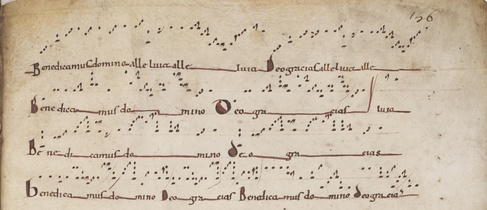 136
Benedicamus domino alle luia alle luia Deo gracias alle luia alle
Bene dica mus do mino Deo gra cias luia
Be ne di camus do mino De o gra cias
benedica mus do mino Deo gra cias Benedica mus do mino Deo gracias